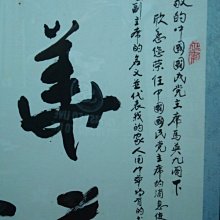 敬的中國國民党主席馬英九閣下
欣悉您榮任中國國民党主席的消息後
副主席的名义並代表我的家人用中華
華